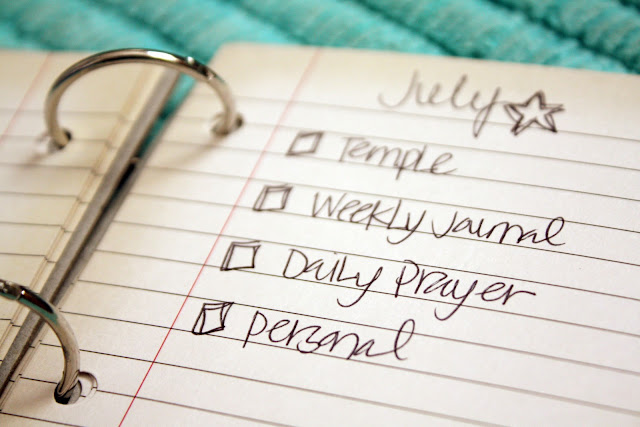 July
Temple
Weekly Journal
Daily Prayer
personal